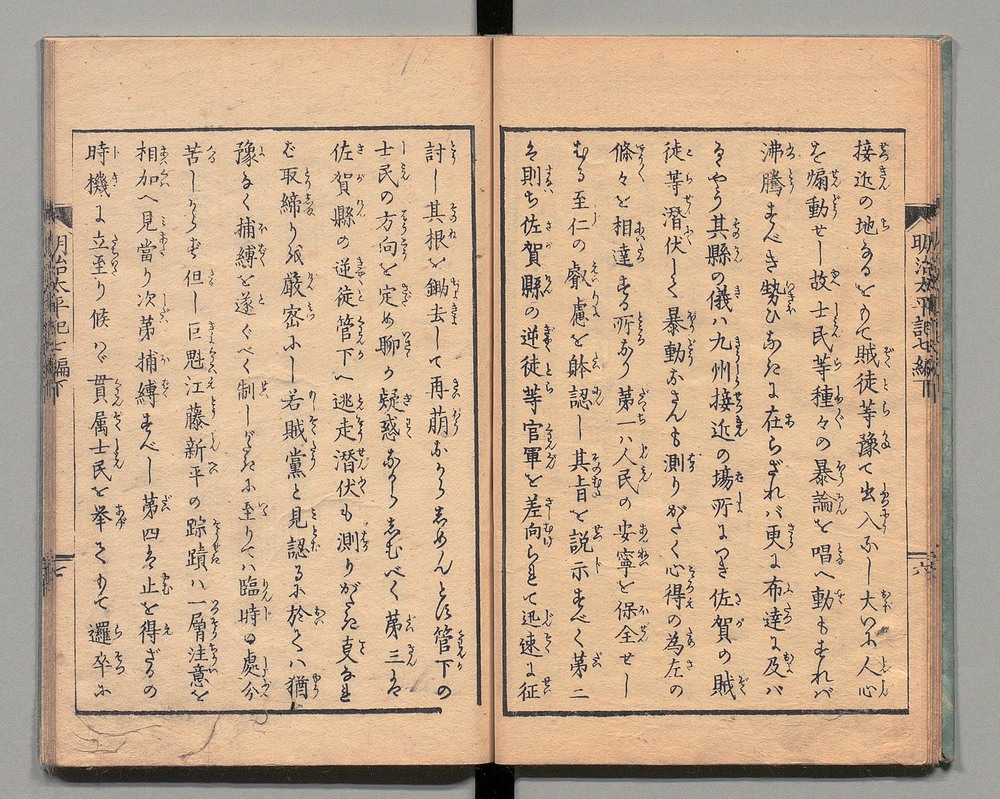 接近の地なるをもて賊徒等豫て出入なし大いに人心
を煽動せし故士民等種々の暴論を唱へ動もすれバ
沸騰すべき勢ひなきに在らざれバ更に布達に及バ
るゝやう其縣の儀ハ九州接近の場所につき佐賀の賊
徒等潜伏して暴動なさんも測りがたく心得の為左の
條々を相達する所なり第一ハ人民の安寧を保全せし
むる至仁の叡慮を躰認し其旨を説示すべく第二
ハ則ち佐賀縣の逆徒等官軍を差向られて迅速に征
明治太平記七編下
六
討し其根を鋤去して再萌なからしめんとす管下の
士民の方向を定め聊か疑惑なからしむべく第三ハ
佐賀縣の逆徒管下へ逃走潜伏も測りがたき
バ取締り方厳密にし若賊黨と見認るに於てハ猶
豫なく捕縛を遂ぐべく制しがたきに至りてハ臨時の處分
苦しからず但し巨魁江藤新平の踪蹟ハ一層注意を
相加へ見當り次第捕縛すべし第四ハ止を得ざるの
時機に立至り候ハゞ貫属士民を挙てもて邏卒に
明治太平記七編下
七